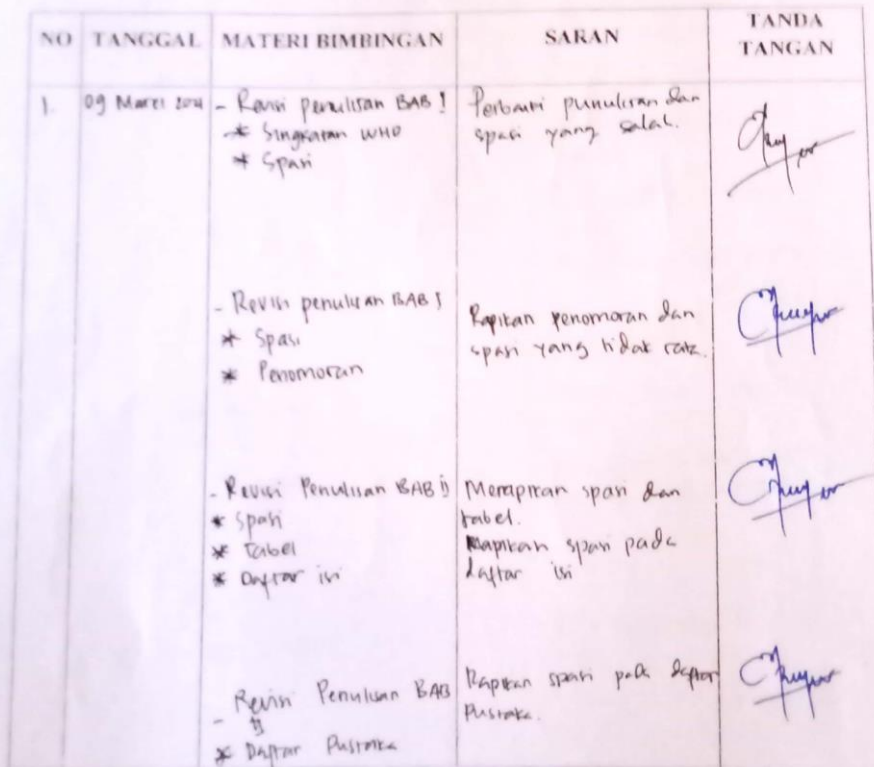 NO TANGGAL MATERI BIMBINGAN SARAN TANDA TANGAN
1. 09 Maret
- Revisi penulisan BAB I
* Singkatan WHO
* Spasi
Perbaiki penulisan dan
spasi yang salah.
- Revisi penulisan BAB I
* Spasi
* Penomoran
Rapikan penomoran dan
spasi yang tidak rata.
- Revisi Penulisan BAB II
* Spasi
* Tabel
* Daftar isi
Merapikan spasi dan
tabel.
Rapikan spasi pada
daftar isi
- Revisi Penulisan BAB
II
* Daftar Pustaka
Rapikan spasi pada daftar
Pustaka.